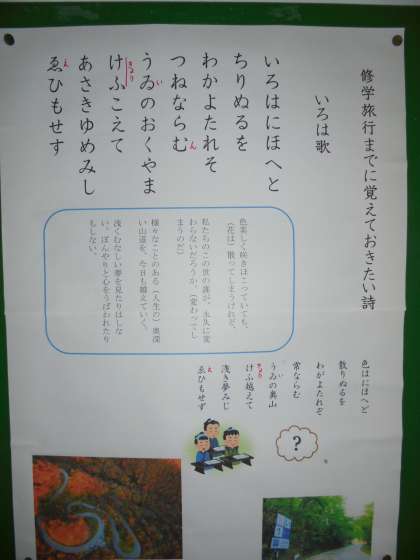 修学旅行までに覚えておきたい詩
いろは歌
いろはにほへと
ちりぬるを
わかよたれそ
つねならむ
ん
うゐのおくやま
い
けふこえて
きょう
あさきゆめみし
ゑひもせす
え
色美しく咲きほこっていても、
(花は)散ってしまうけれど、
私たちのこの世の誰が、永久に変
わらないだろうか。(変わってし
まうのだ)
様々なことのある(人生の)奥深
い山道を、今日も越えていく。
浅くむなしい夢を見たりはしな
い、ぼんやりと心をうばわれたり
もしない。
色はにほへど
散りぬるを
わがよたれぞ
常ならむ
うゐの奥山
い
けふ越えて
きょう
浅き夢みじ
ゑひもせず
え
?